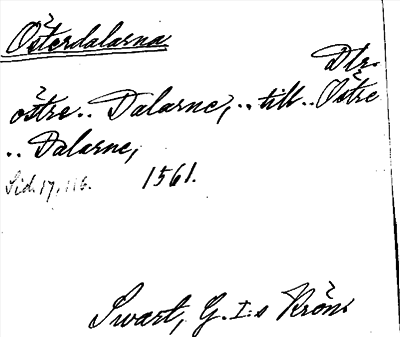 Österdalarna
Dlr.
östre.. Dalarne, .. till.. Östre
.. Dalarne,
Sid. 17, 116. 1561.
Swart, G. I:s Krön.